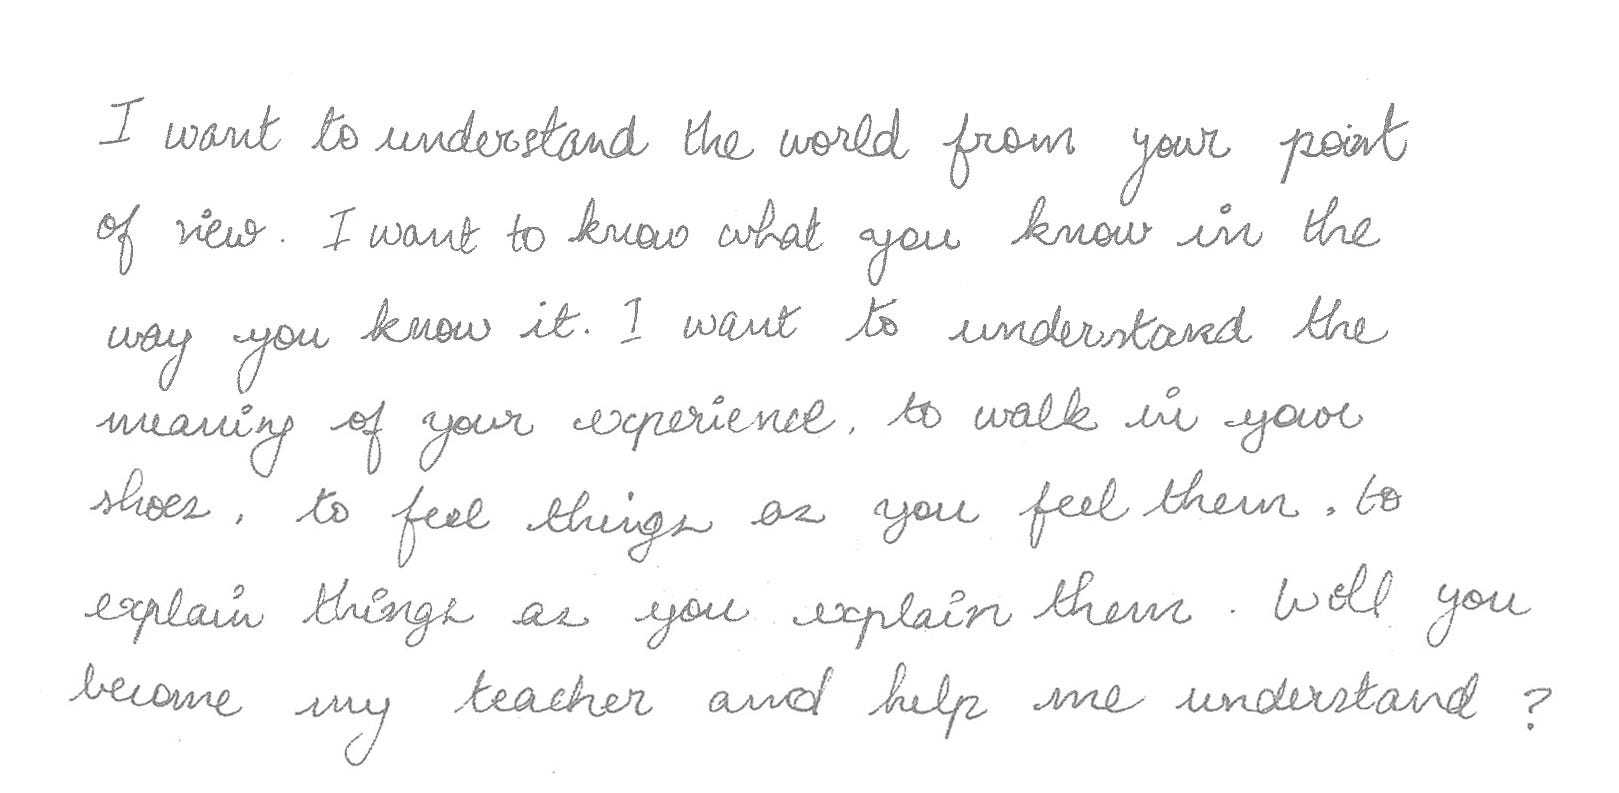 I want to understand the world from your point
of view. I want to know what you know in the
way you know it. I want to understand the
meaning of your experience, to walk in your
shoes, to feel things as you feel them, to
explain things as you explain them. Will you
become my teacher and help me understand?